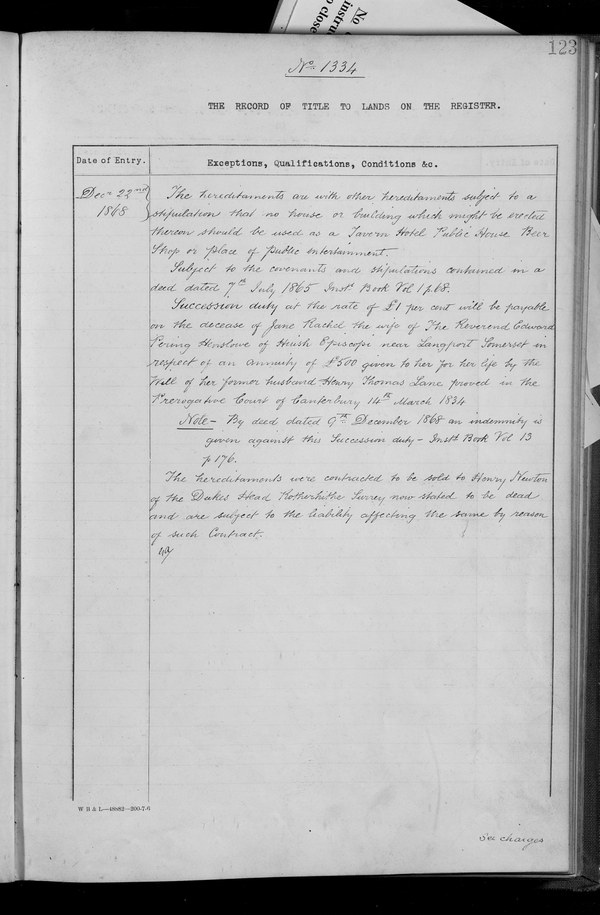 No
instru
o close
123
No 1334
THE RECORD OF TITLE TO LANDS ON THE REGISTER.
Date of Entry.
Exceptions, Qualifications, Conditions &c.
Decr 22nd
1868
The hereditaments are with other hereditaments subject to a
stipulation that no house or building which might be erected
thereon should be used as a Tavern Hotel Public House Beer
Shop or place of public entertainment.
Subject to the covenants and stipulations contained in a
deed dated 7th July 1865 Inst. Book Vol 1 p 68.
Succession duty at the rate of £1 per cent will be payable
on the decease of Jane Rachel the wife of The Reverend Edward
Pering Henslowe of Huish Episcopi near Langport Somerset in
respect of an annuity of £500 given to her for her life by the
Will of her former husband Henry Thomas Lane proved in the
Prerogative Court of Canterbury 14th March 1834
Note - By deed dated 9th December 1868 an indemnity is
given against this Succession duty - Inst. Book Vol 13
p 176.
The hereditaments were contracted to be sold to Henry Newton
of the Dukes Head Rotherhithe Surrey now stated to be dead
and are subject to the liability affecting the same by reason
of such Contract.
W B & L—48882—200-7-8
See charges